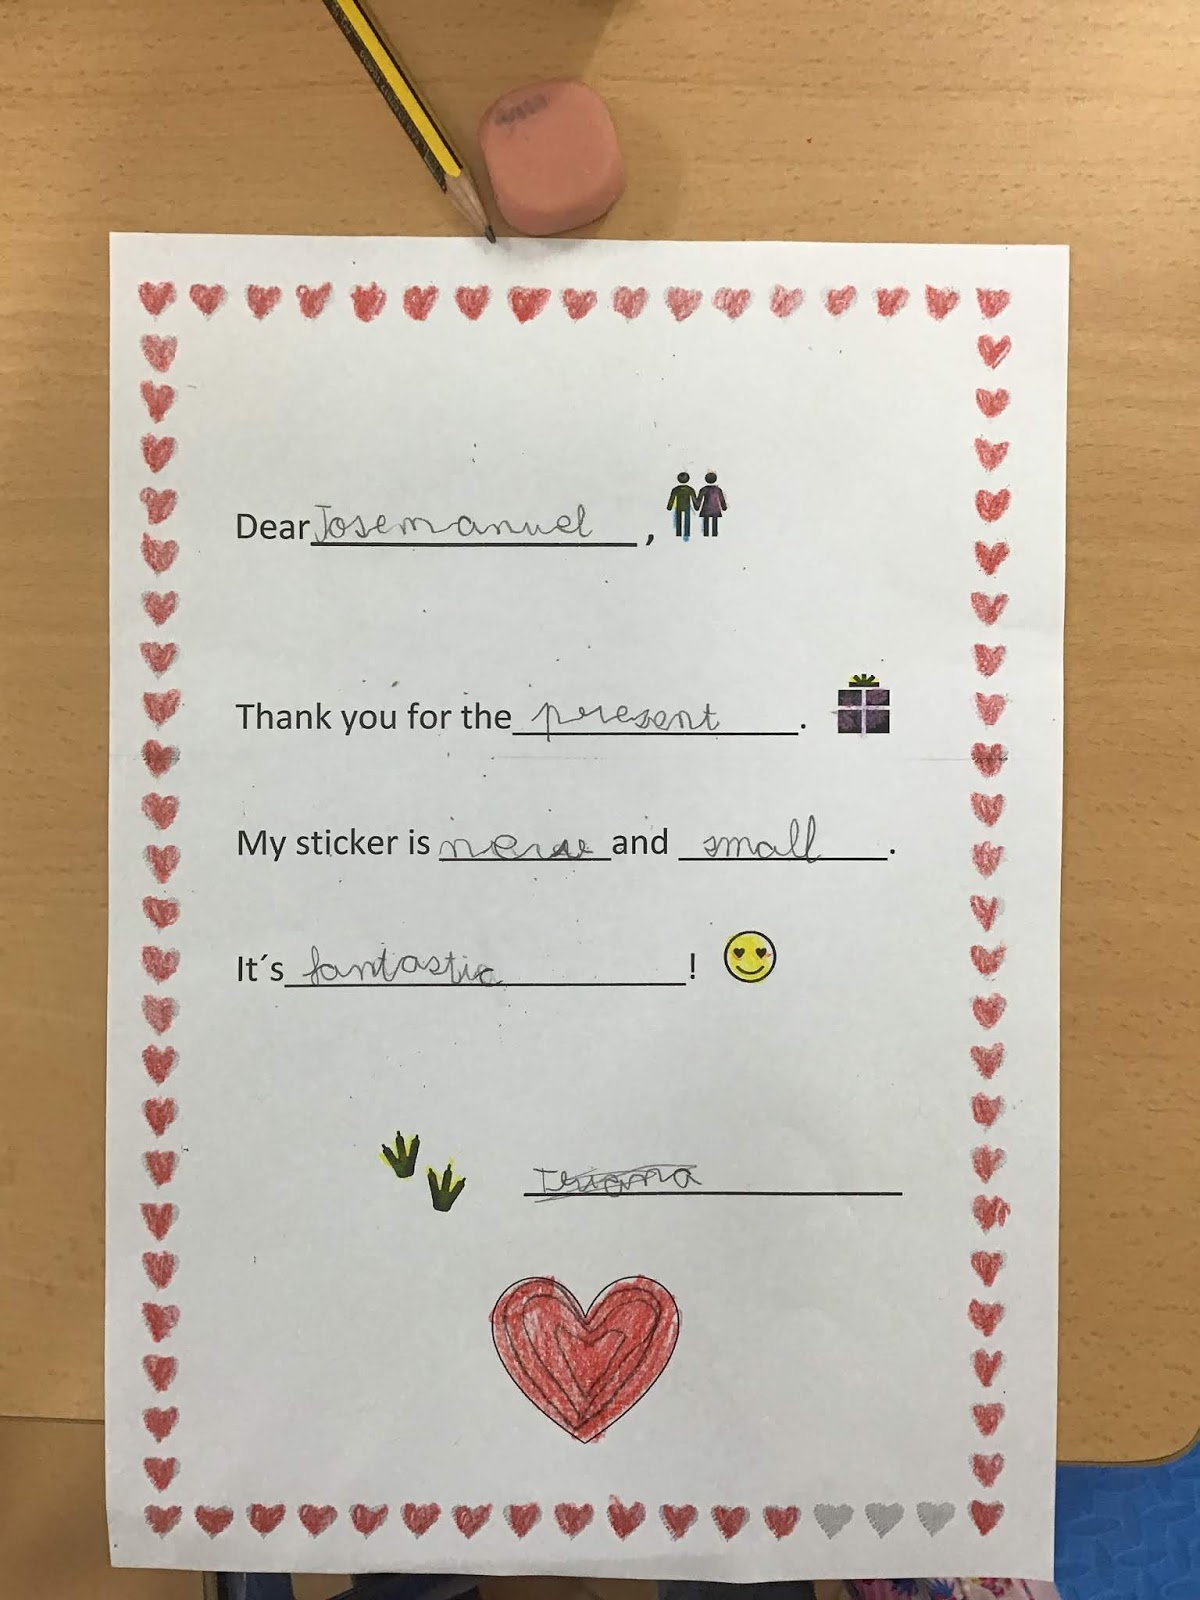 Dear Josemanuel ,
Thank you for the present .
My sticker is and small .
It´s fantastic !